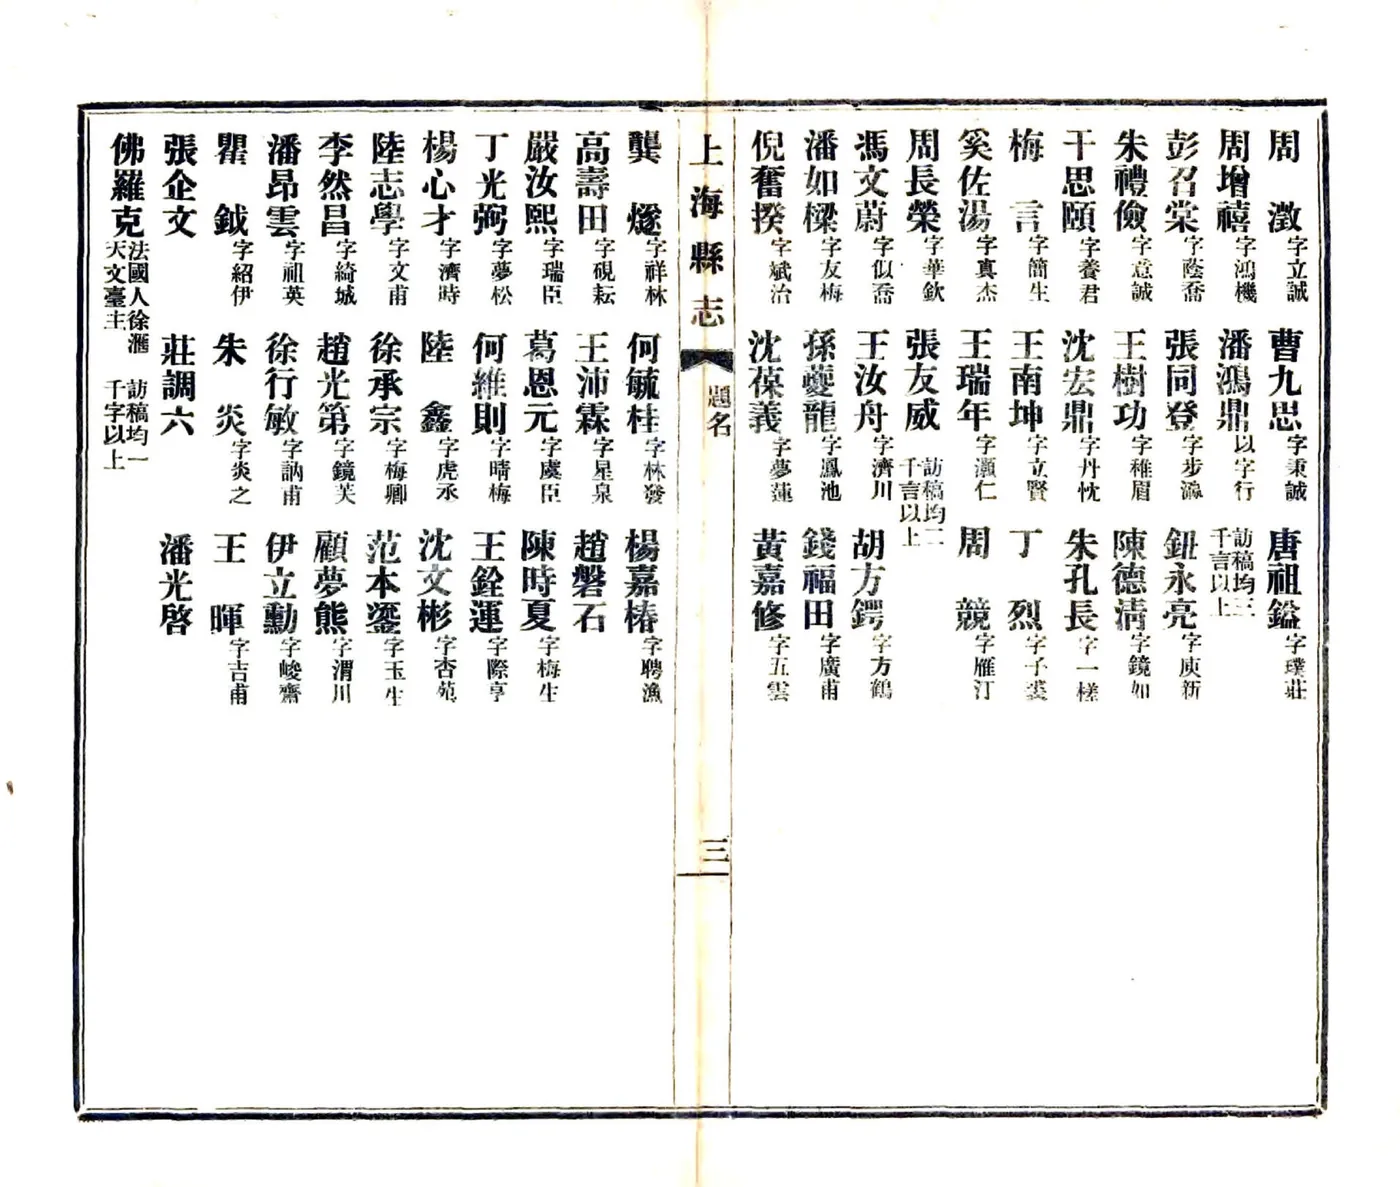 周澂字立誠 曹九思字秉誠 唐祖鎰字璞莊
周增禧字鴻機 潘鴻鼎以字行 訪稿均三千言以上
彭召棠字蔭喬 張同登字步瀛 鈕永亮字庚新
朱禮儉字意誠 王樹功字稚眉 陳德清字鏡如
干思頤字養君 沈宏鼎字丹忱 朱孔長字一槎
梅言字簡生 王南坤字立賢 丁烈字子裘
奚佐湯字真杰 王瑞年字灝仁 周競字雁汀
周長榮字華欽 張友威 訪稿均二千言以上
馮文蔚字似喬 王汝舟字濟川 胡方鍔字方鶴
潘如樑字友梅 孫夔龍字鳳池 錢福田字廣甫
倪奮揆字斌治 沈葆義字夢蓮 黃嘉修字五雲
上海縣志 題名 三
龔燧字祥林 何毓桂字林發 楊嘉椿字聘漁
高壽田字硯耘 王沛霖字星泉 趙磐石
嚴汝熙字瑞臣 葛恩元字虞臣 陳時夏字梅生
丁光弼字夢松 何維則字晴梅 王銓運字際亨
楊心才字濟時 陸鑫字虎丞 沈文彬字杏苑
陸志學字文甫 徐承宗字梅卿 范本鎏字玉生
李然昌字綺城 趙光第字鏡芙 顧夢熊字渭川
潘昂雲字祖英 徐行敏字訥甫 伊立勳字峻齋
瞿鉞字紹伊 朱炎字炎之 王暉字吉甫
張企文 莊調六 潘光啓
佛羅克法國人徐滙天文臺主 訪稿均一千字以上